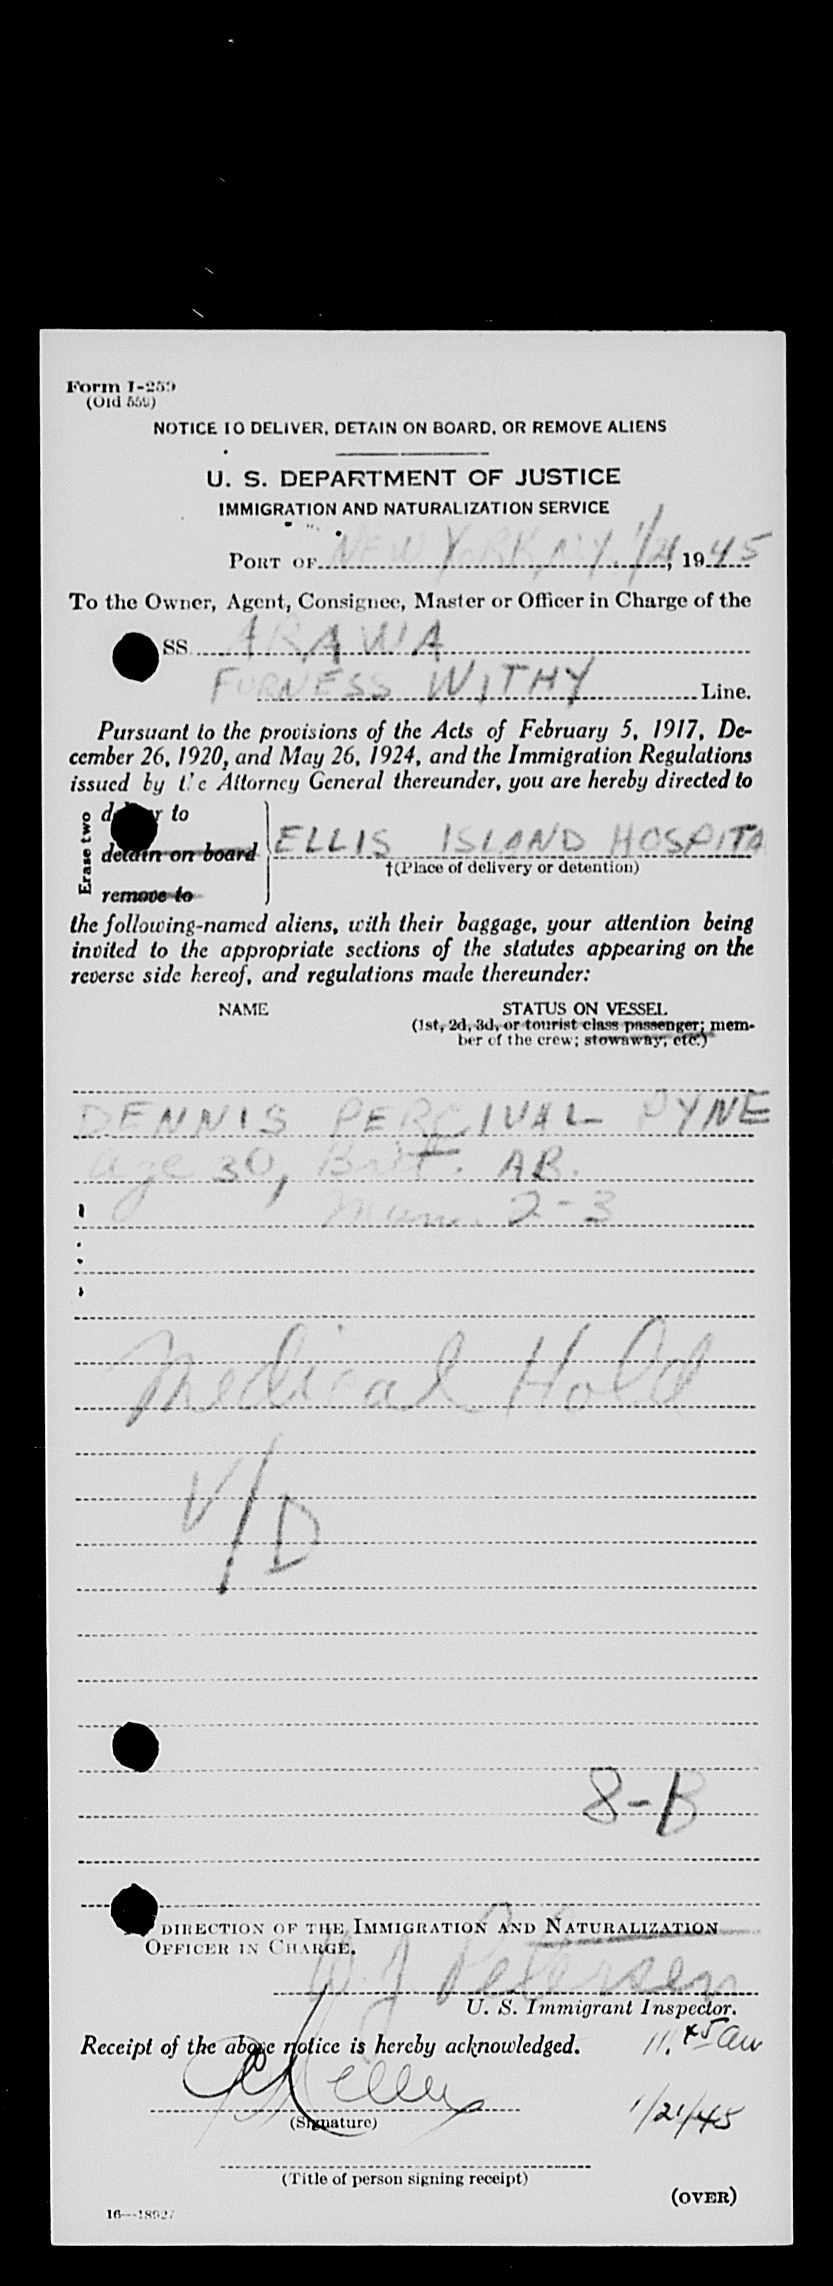 Form I-259
(Old 559)
NOTICE TO DELIVER, DETAIN ON BOARD, OR REMOVE ALIENS
U. S. DEPARTMENT OF JUSTICE
IMMIGRATION AND NATURALIZATION SERVICE
PORT OF NEW YORK, N.Y. 1/21, 1945
To the Owner, Agent, Consignee, Master or Officer in Charge of the
SS ARAWA
FURNESS WITHY Line.
Pursuant to the provisions of the Acts of February 5, 1917, De-
cember 26, 1920, and May 26, 1924, and the Immigration Regulations
issued by the Attorney General thereunder, you are hereby directed to
Erase two
deliver to
detain on board ELLIS ISLAND HOSPITA
†(Place of delivery or detention)
remove to
the following-named aliens, with their baggage, your attention being
invited to the appropriate sections of the statutes appearing on the
reverse side hereof, and regulations made thereunder:
NAME STATUS ON VESSEL
(1st, 2d, 3d, or tourist class passenger; mem-
ber of the crew; stowaway; etc.)
DENNIS PERCIVAL PYNE
age 30, Brit. AB.
Mum. 2-3
Medical Hold
V/D
8-B
DIRECTION OF THE IMMIGRATION AND NATURALIZATION
OFFICER IN CHARGE.
W J Petersen
U. S. Immigrant Inspector.
Receipt of the above notice is hereby acknowledged. 11.45 am
(Signature) 1/21/45
(Title of person signing receipt)
(OVER)
16—18927